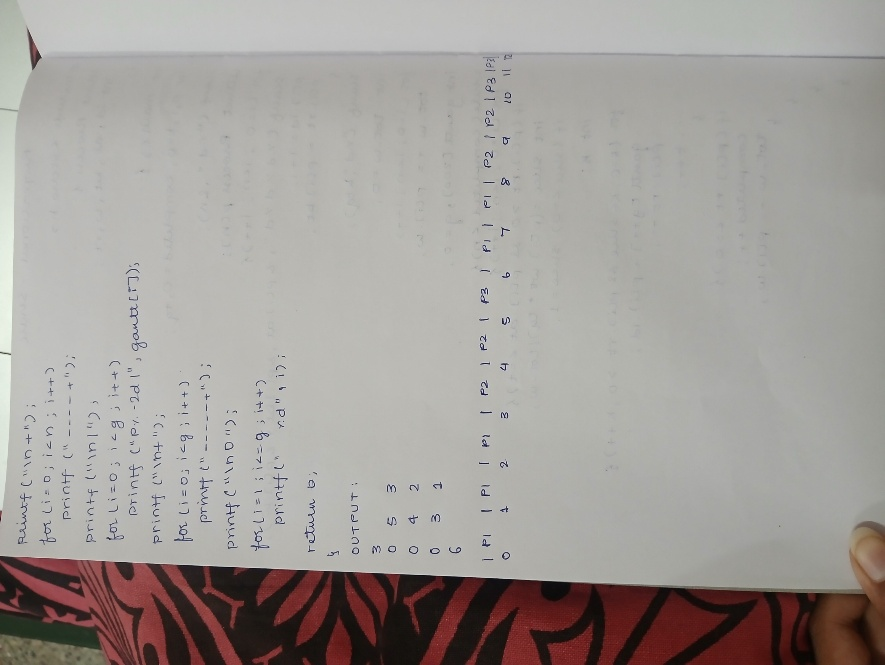 printf("\n+");
for(i=0; i<n; i++)
printf("-----+");
printf("\n|");
for(i=0; i<g; i++)
printf("P%-2d|", gantt[i]);
printf("\n+");
for(i=0; i<g; i++)
printf("-----+");
printf("\n0");
for(i=1; i<=g; i++)
printf(" %d", i);
return 0;
}
OUTPUT:
3
0 5 3
0 4 2
0 3 1
6
| P1 | P1 | P1 | P2 | P2 | P3 | P1 | P1 | P2 | P2 | P3 | P3 |
0 1 2 3 4 5 6 7 8 9 10 11 12